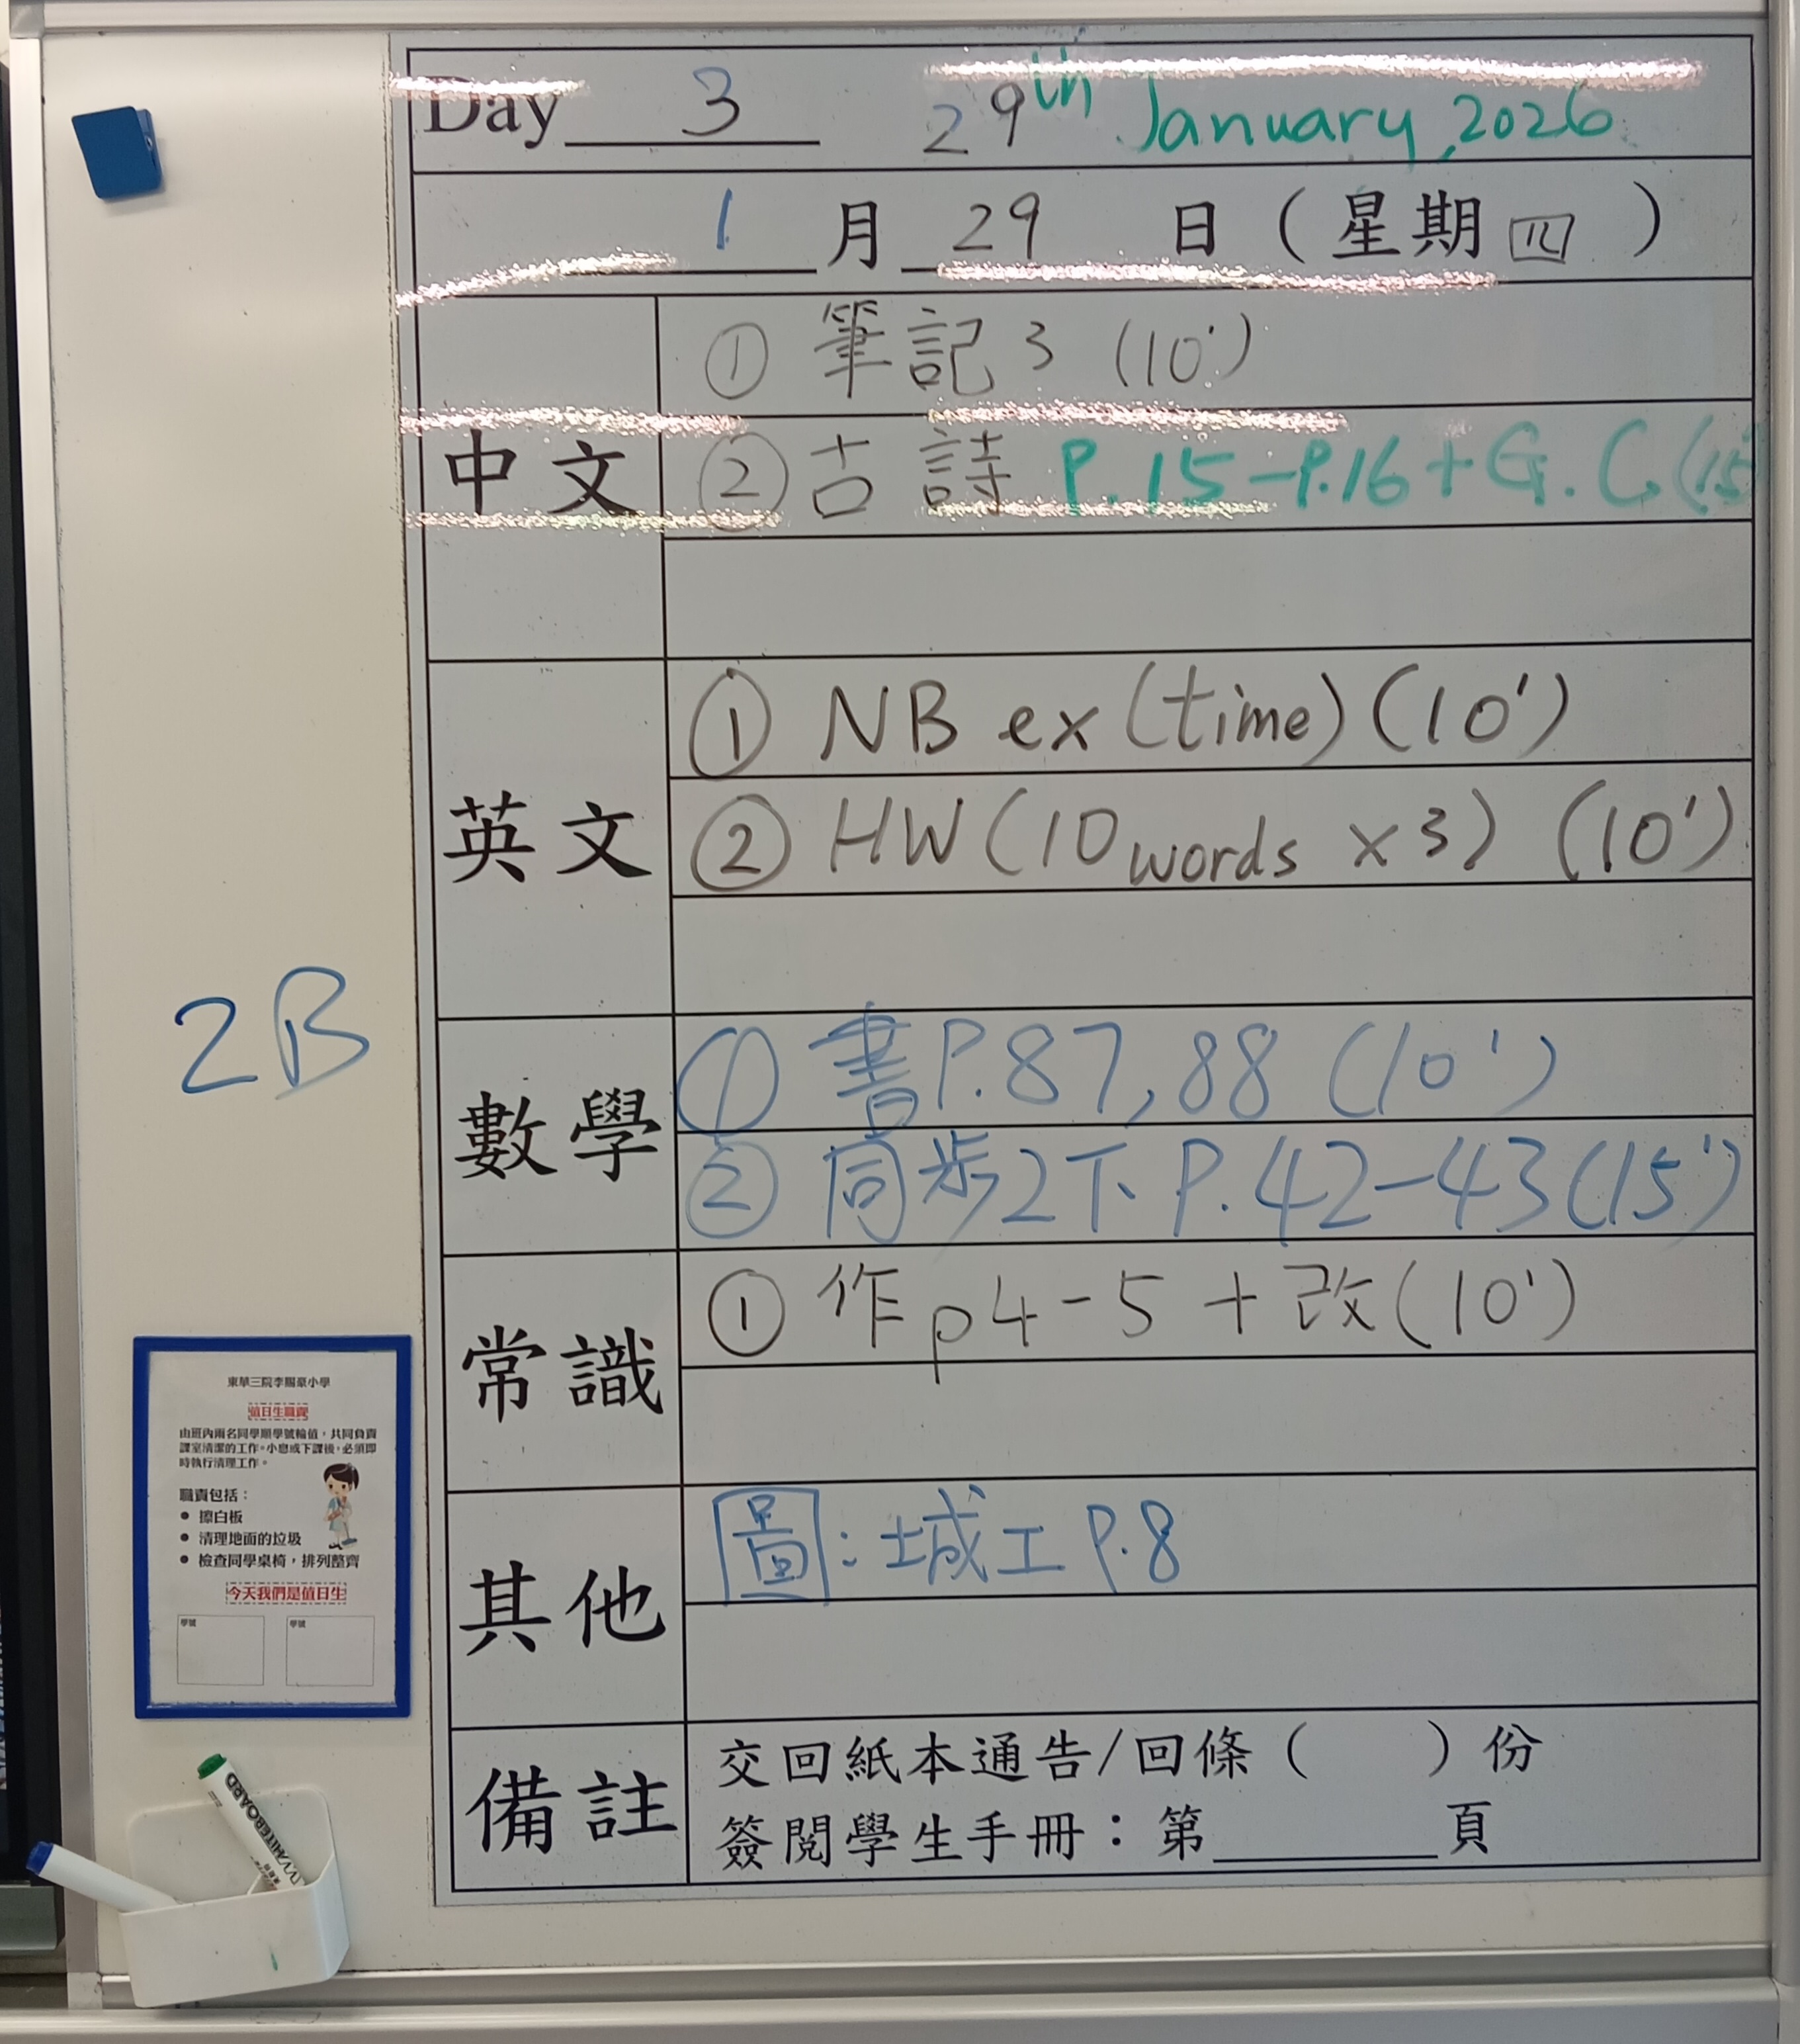 Day 3 29th January, 2026
1 月 29 日 ( 星期 四 )
中文
① 筆記 3 (10')
② 古詩 P.15-P.16 + G.C. (15
英文
① NB ex (time) (10')
② HW (10 words x 3) (10')
數學
① 書P.87, 88 (10')
② 同步2下 P.42-43 (15')
常識
① 作 p4-5 + 改 (10')
其他
圖 : 城工 P.8
備註
交回紙本通告/回條 ( ) 份
簽閱學生手冊：第 頁
2B
東華三院李賜豪小學
值日生職責
由班內兩名同學順學號輪值，共同負責
課室清潔的工作。小息或下課後，必須即
時執行清理工作。
職責包括：
• 擦白板
• 清理地面的垃圾
• 檢查同學桌椅，排列整齊
今天我們是值日生
學號 學號
WHITEBOARD